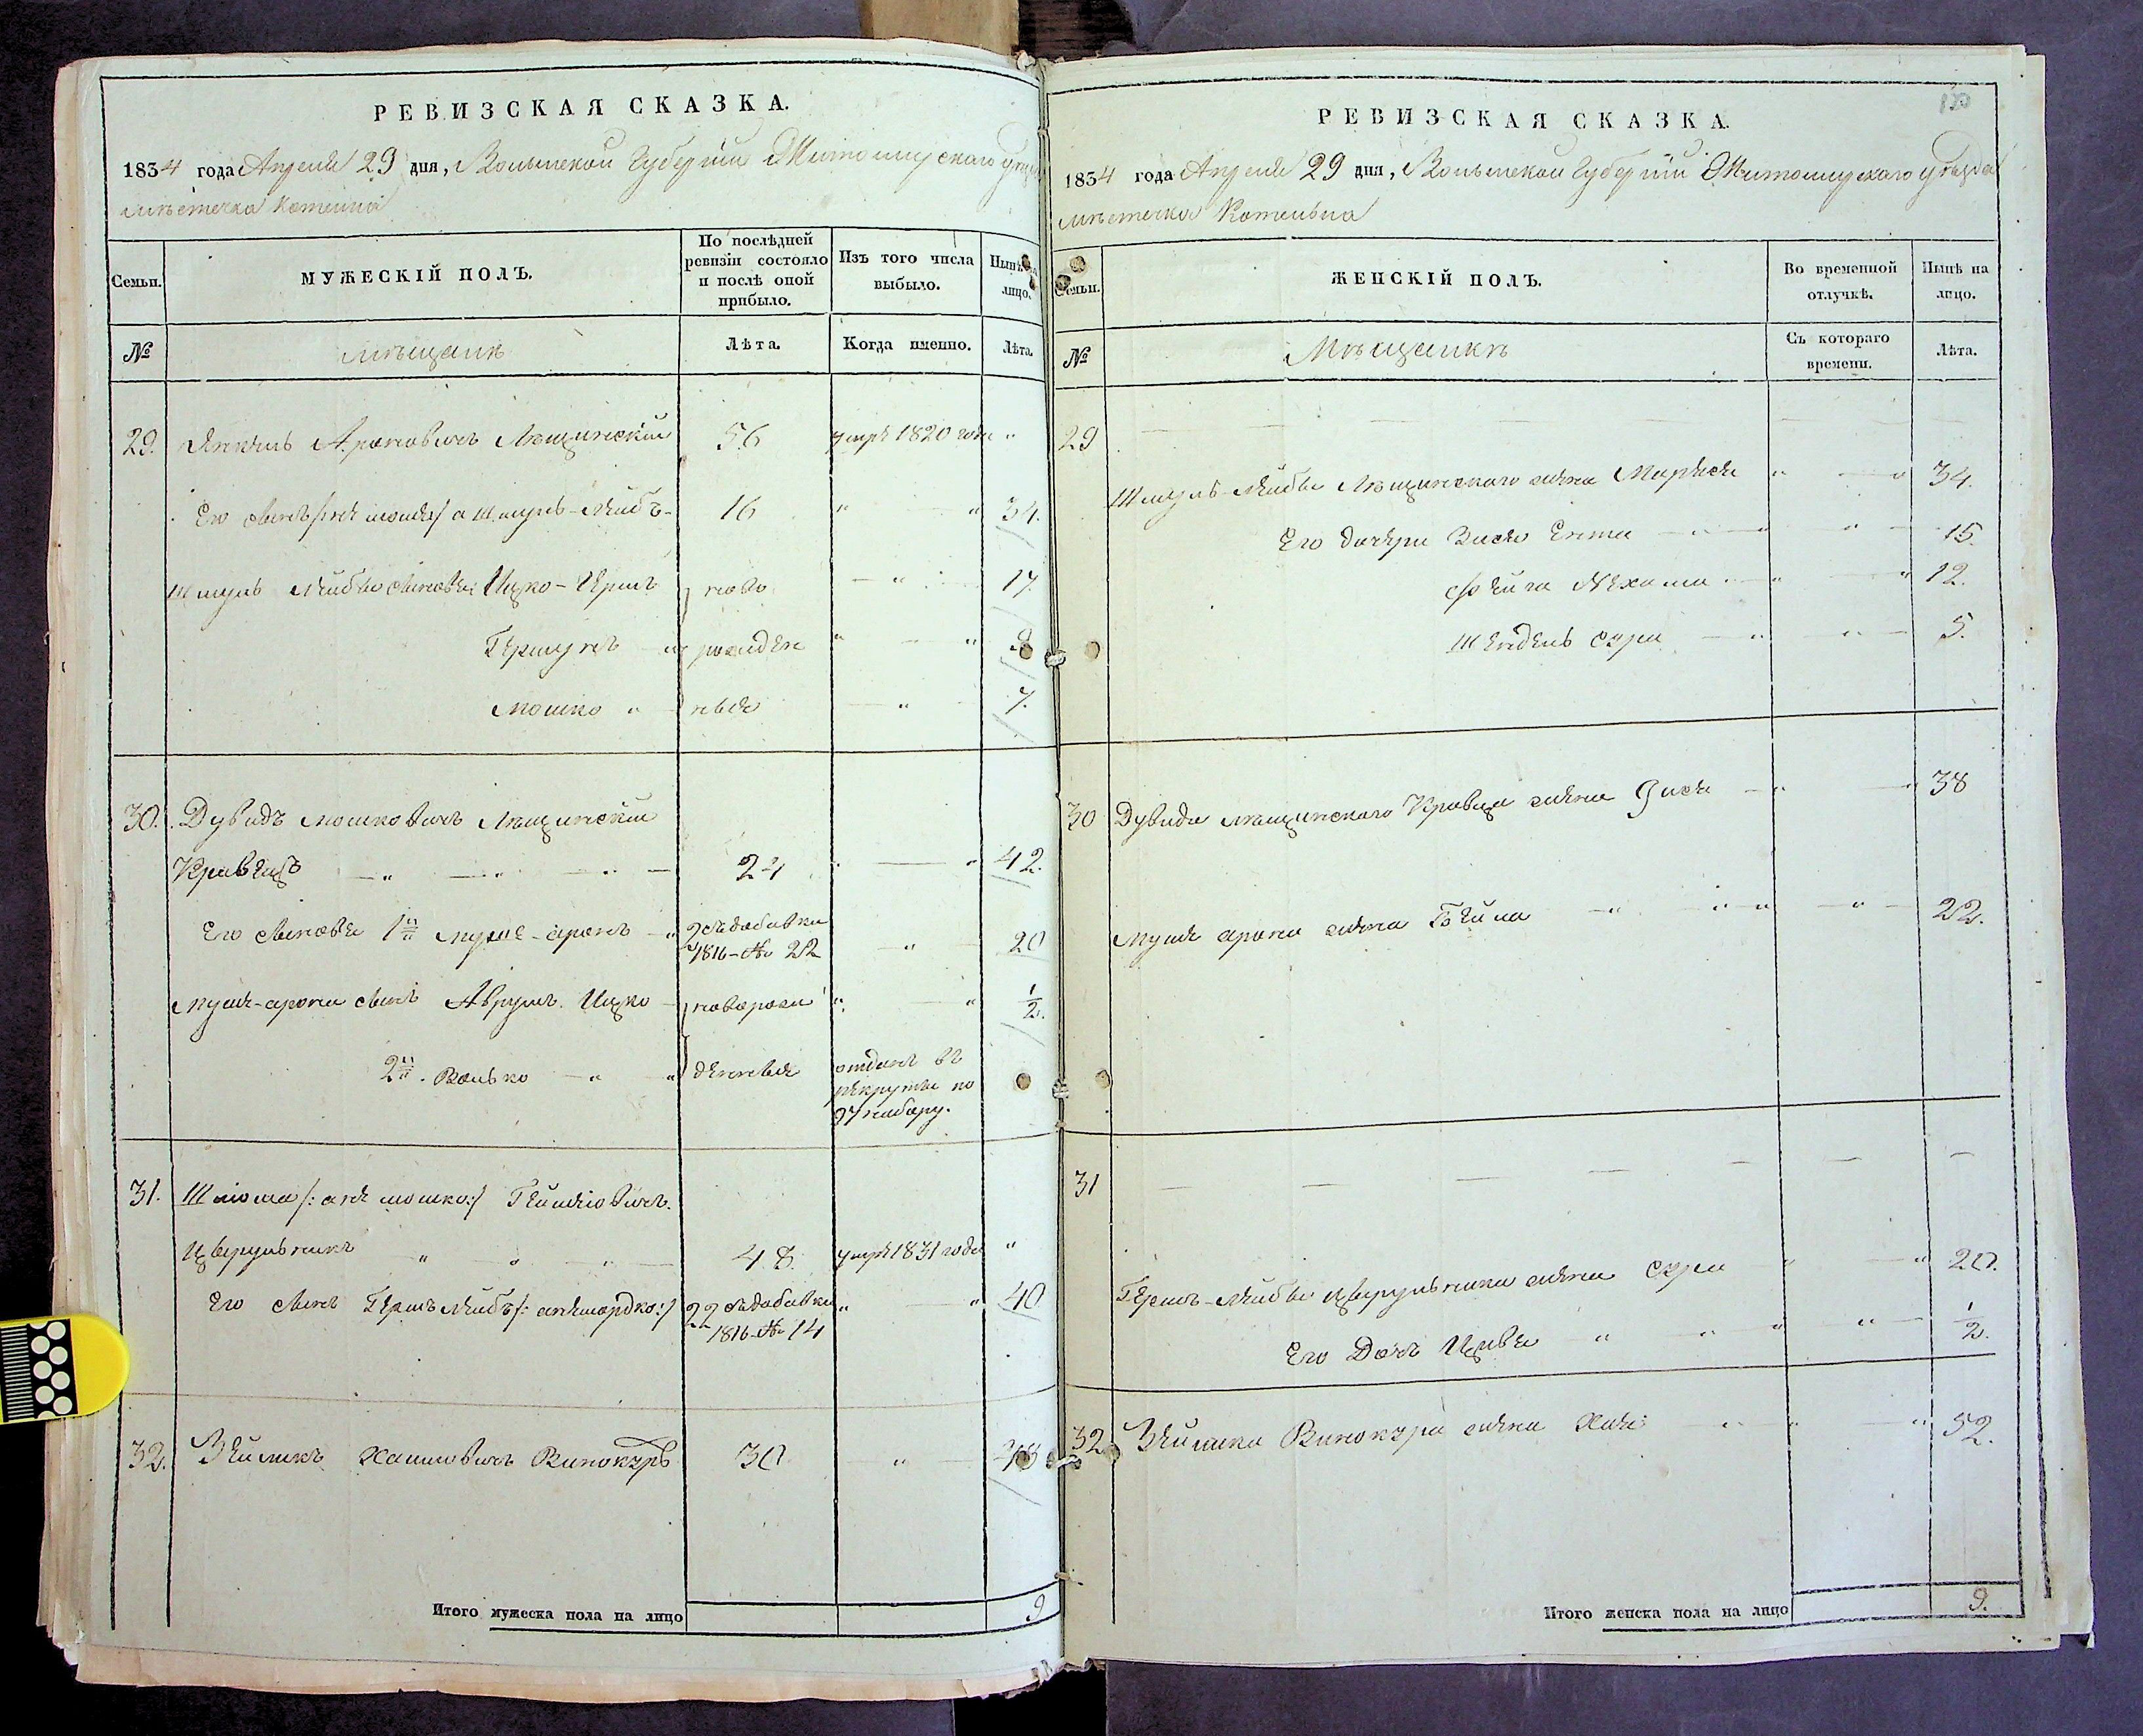 РЕВИЗСКАЯ СКАЗКА.
1834 года Апреля 29 дня, Волынской Губернии Житомирскаго уезда
местечка Котельна
Семьи.
МУЖЕСКІЙ ПОЛЪ.
По послѣдней ревизіи состояло и послѣ оной прибыло.
Изъ того числа выбыло.
Нынѣ на лицо.
№
мѣщанъ
Лѣта.
Когда именно.
Лѣта.
29. Янкель Ароновичъ Лещинскій 56 умре 1820 года "
Его сынъ а Шмуль-Лейбъ 16 " " 34.
Шмуль Лейбы сыновья: Ицко-Йерш ново " 17.
Гершунъ " рожден " " 8
Мошко " ныя " 7.
30. Дувидъ Мошковичъ Лещинскій
Кравецъ " 24 " " 42.
Его сыновья 1й Муше-Аронъ " 2 съ добавки 1816 № 22 " 20
Муше-Арона сынъ Аврумъ Ицко новорож " " 1/2.
2й. Волько " " денныя отданъ въ рекруты по 97 набору.
31. Шлиома /: онже мошко:/ Геймановичъ.
Цверульникъ " " " 48. умре 1831 года "
Его сынъ Гершъ Лейбъ /: онже мордко:/ 22 съ добавки 1816 № 14 " " 40
32. Зейликъ Хаимовичъ Винокуръ 30. " 48
Итого мужеска пола на лицо 9
РЕВИЗСКАЯ СКАЗКА.
1834 года Апреля 29 дня, Волынской Губернии Житомирскаго уезда
местечка Котельна
Семьи.
ЖЕНСКІЙ ПОЛЪ.
Во временной отлучкѣ.
Нынѣ на лицо.
№
Мѣщанкъ
Съ котораго времени.
Лѣта.
29
Шмуль-Лейбы Лещинскаго жена Марьяся " " 34.
Его дочери Вися Ента " " " 15.
Фейга Нехама " " " 12.
Шендель Сура " " 5.
30 Дувида Лещинскаго Кравца жена Дися " " 38
Муше Арона жена Бейла " " " " 22.
31
Гершъ-Лейбы Цверульника жена Сура " " 20.
Его Дочь Цивья " " " " 1/2.
32 Зейлика Винокура жена Хая " " " 52.
Итого женска пола на лицо 9.